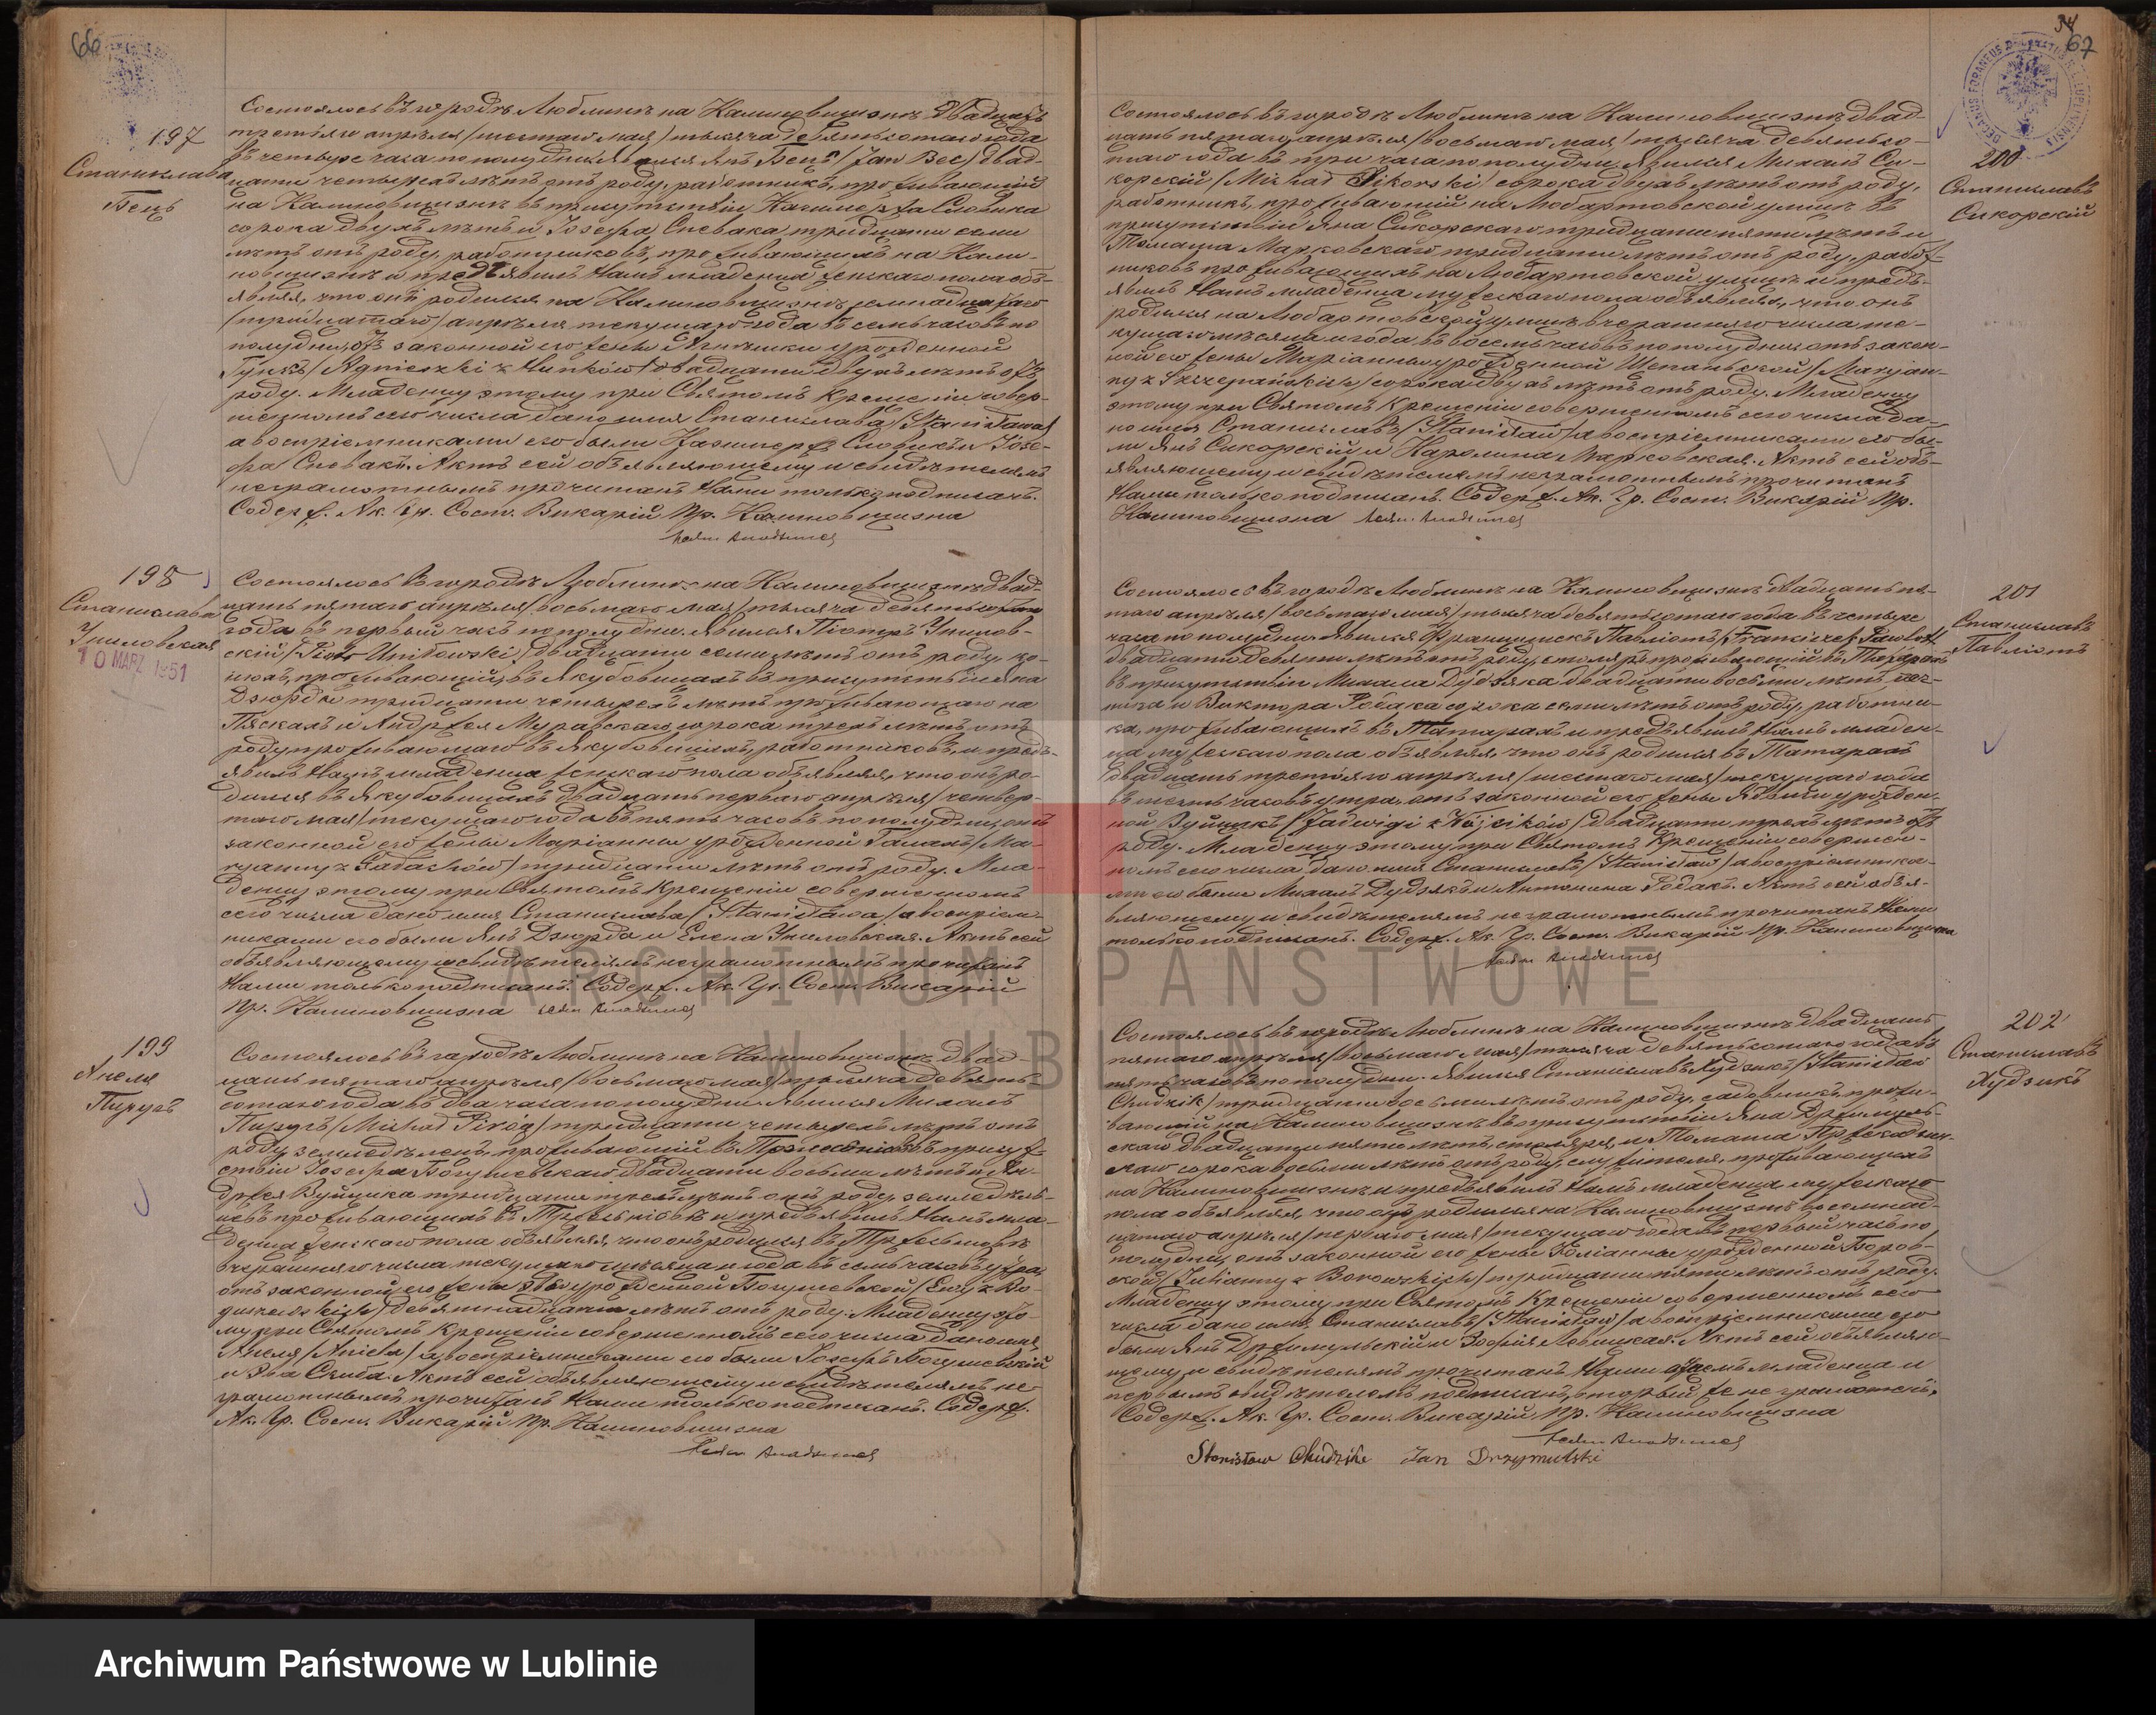 66
197
Станислава
Бець
Состоялось въ городѣ Люблинѣ на Калиновщизнѣ двадцать
третьяго апрѣля /шестаго мая/ тысяча девятьсотаго года
въ четыре часа по полудни. Явился Янъ Бець /Jan Bec/ двад-
цати четырехъ лѣтъ отъ роду, работникъ, проживающій
на Калиновщизнѣ въ присутствіи Казимержа Словика
сорока двухъ лѣтъ и Іосефа Спевака тридцати семи
лѣтъ отъ роду, работниковъ, проживающихъ на Кали-
новщизнѣ и предъявилъ Намъ младенца женскаго пола объ-
являя, что онъ родился на Калиновщизнѣ семнадцатаго
/тридцатаго/ апрѣля текущаго года въ семь часовъ по
полудни, отъ законной его жены Агнешки урожденной
/Agnieszki z / двадцати двухъ лѣтъ отъ
роду. Младенцу этому при Святомъ Крещеніи совер-
шенномъ сего числа дано имя Станислава /Stanisława/
а воспріемниками его были Казимержъ Словикъ и Іозе-
фа Спевакъ. Актъ сей объявляющему и свидѣтелямъ
неграмотнымъ прочитанъ Нами только подписанъ.
Содерж. Ак. Гр. Сост. Викарій Пр. Калиновщизна
198
Станислава
Униловская
10 MARZ 1951
Состоялось въ городѣ Люблинѣ на Калиновщизнѣ двад-
цать пятаго апрѣля /восьмаго мая/ тысяча девятьсотаго
года въ первый часъ по полудни. Явился Піотръ Унилов-
скій /Piotr Uniłowski/ двадцати семи лѣтъ отъ роду, ко-
нюхъ, проживающій въ Якубовицахъ въ присутствіи Яна
Дзюрды тридцати четырехъ лѣтъ проживающаго на
Пяскахъ и Андржея Муравскаго сорока трехъ лѣтъ отъ
роду проживающаго въ Якубовицахъ, работниковъ, и предъ-
явилъ Намъ младенца женскаго пола объявляя, что онъ ро-
дился въ Якубовицахъ двадцать перваго апрѣля /четвер-
таго мая/ текущаго года въ пять часовъ по полудни, отъ
законной его жены Маріанны урожденной Галахъ /Ma-
ryanny z / тридцати лѣтъ отъ роду. Мла-
денцу этому при Святомъ Крещеніи совершенномъ
сего числа дано имя Станислава /Stanisława/ а воспріем-
никами его были Янъ Дзюрда и Елена Униловская. Актъ сей
объявляющему и свидѣтелямъ неграмотнымъ прочитанъ
Нами только подписанъ. Содерж. Ак. Гр. Сост. Викарій
Пр. Калиновщизна
199
Анеля
Пирогъ
Состоялось въ городѣ Люблинѣ на Калиновщизнѣ двад-
цать пятаго апрѣля /восьмаго мая/ тысяча девять-
сотаго года въ два часа по полудни. Явился Михалъ
Пирогъ /Michał Piróg/ тридцати четырехъ лѣтъ отъ
роду, земледѣлецъ, проживающій въ въ присут-
ствіи Іосефа Богушевскаго двадцати восьми лѣтъ и Ан-
држея Вуйцика тридцати трехъ лѣтъ отъ роду, земледѣль-
цевъ проживающихъ въ и предъявилъ Намъ мла-
денца женскаго пола объявляя, что онъ родился въ
вчерашняго числа текущаго мѣсяца и года въ семь часовъ утра,
отъ законной его жены Эвы урожденной Богушевской /Ewy z Bo-
guszewskich/ девятнадцати лѣтъ отъ роду. Младенцу это-
му при Святомъ Крещеніи совершенномъ сего числа дано имя
Анеля /Aniela/ а воспріемниками его были Іосефъ Богушевскій
и Эва Скиба. Актъ сей объявляющему и свидѣтелямъ не-
грамотнымъ прочитанъ Нами только подписанъ. Содерж.
Ак. Гр. Сост. Викарій Пр. Калиновщизна
34
67
DECANUS FORANEUS LUBLINENSIS
200
Станиславъ
Сикорскій
Состоялось въ городѣ Люблинѣ на Калиновщизнѣ двад-
цать пятаго апрѣля /восьмаго мая/ тысяча девятьсо-
таго года въ три часа по полудни. Явился Михалъ Си-
корскій /Michał Sikorski/ сорока двухъ лѣтъ отъ роду,
работникъ, проживающій на Любартовской улицѣ въ
присутствіи Яна Сикорскаго тридцати пяти лѣтъ и
Томаша Марковскаго тридцати лѣтъ отъ роду, работ-
никовъ проживающихъ на Любартовской улицѣ и предъ-
явилъ Намъ младенца мужескаго пола объявляя, что онъ
родился на Любартовской улицѣ вчерашняго числа те-
кущаго мѣсяца и года въ восемь часовъ по полудни отъ закон-
ной его жены Маріанны урожденной Щепаньской /Maryan-
ny z Szczepańskich/ сорока двухъ лѣтъ отъ роду. Младенцу
этому при Святомъ Крещеніи совершенномъ сего числа да-
но имя Станиславъ /Stanisław/ а воспріемниками его бы-
ли Янъ Сикорскій и Каролина Марковская. Актъ сей объ-
являющему и свидѣтелямъ неграмотнымъ прочитанъ
Нами только подписанъ. Содерж. Ак. Гр. Сост. Викарій Пр.
Калиновщизна
201
Станиславъ
Павліотъ
Состоялось въ городѣ Люблинѣ на Калиновщизнѣ двадцать пя-
таго апрѣля /восьмаго мая/ тысяча девятьсотаго года въ четыре
часа по полудни. Явился Францишекъ Павліотъ /Franciszek /
двадцати девяти лѣтъ отъ роду, столяръ проживающій въ Татарахъ
въ присутствіи Михала Дудзяка двадцати восьми лѣтъ,
и Виктора Родака сорока семи лѣтъ отъ роду, работни-
ка, проживающихъ въ Татарахъ и предъявилъ Намъ младен-
ца мужескаго пола объявляя, что онъ родился въ Татарахъ
двадцать третьяго апрѣля /шестаго мая/ текущаго года
въ часовъ утра, отъ законной его жены Ядвиги урожден-
ной Вуйцикъ /Jadwigi z Wójcików/ двадцати трехъ лѣтъ отъ
роду. Младенцу этому при Святомъ Крещеніи совершен-
номъ сего числа дано имя Станиславъ /Stanisław/ а воспріемника-
ми его были Михалъ Дудзякъ и Антонина Родакъ. Актъ сей объя-
вляющему и свидѣтелямъ неграмотнымъ прочитанъ Нами
только подписанъ. Содерж. Ак. Гр. Сост. Викарій Пр. Калиновщизна
202
Станиславъ
Худзикъ
Состоялось въ городѣ Люблинѣ на Калиновщизнѣ двадцать
пятаго апрѣля /восьмаго мая/ тысяча девятьсотаго года въ
пять часовъ по полудни. Явился Станиславъ Худзикъ /Stanisław
Chudzik/ тридцати восьми лѣтъ отъ роду, садовникъ, прожи-
вающій на Калиновщизнѣ въ присутствіи Яна Држимуль-
скаго двадцати пяти лѣтъ, столяра, и Томаша
сорока восьми лѣтъ отъ роду, служителя, проживающихъ
на Калиновщизнѣ и предъявилъ Намъ младенца мужескаго
пола объявляя, что онъ родился на Калиновщизнѣ восемнад-
цатаго апрѣля /перваго мая/ текущаго года въ первый часъ по
полудни, отъ законной его жены Юліанны урожденной Боров-
ской /Julianny z Borowskich/ тридцати пяти лѣтъ отъ роду.
Младенцу этому при Святомъ Крещеніи совершенномъ сего
числа дано имя Станиславъ /Stanisław/ а воспріемниками его
были Янъ Држимульскій и Зофія Левицкая. Актъ сей объявляю-
щему и свидѣтелямъ прочитанъ Нами отцемъ младенца и
первымъ свидѣтелемъ подписанъ, вторый же неграмотенъ.
Содерж. Ак. Гр. Сост. Викарій Пр. Калиновщизна
Stanisław Chudzik Jan Drzymulski
ARCHIWUM PAŃSTWOWE
W LUBLINIE
Archiwum Państwowe w Lublinie